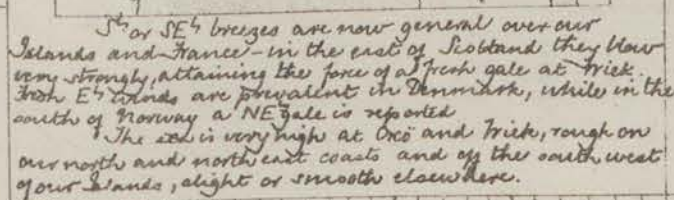 Sly or SEly breezes are now general over our
Islands and France - in the east of Scotland they blow
very strongly, attaining the force of a fresh gale at Wick.
Fresh Ely winds are prevalent in Denmark, while in the
south of Norway a NEly gale is reported
The sea is very high at Oxö and Wick, rough on
our north and north east coasts and off the south west
of our Islands, slight or smooth elsewhere.